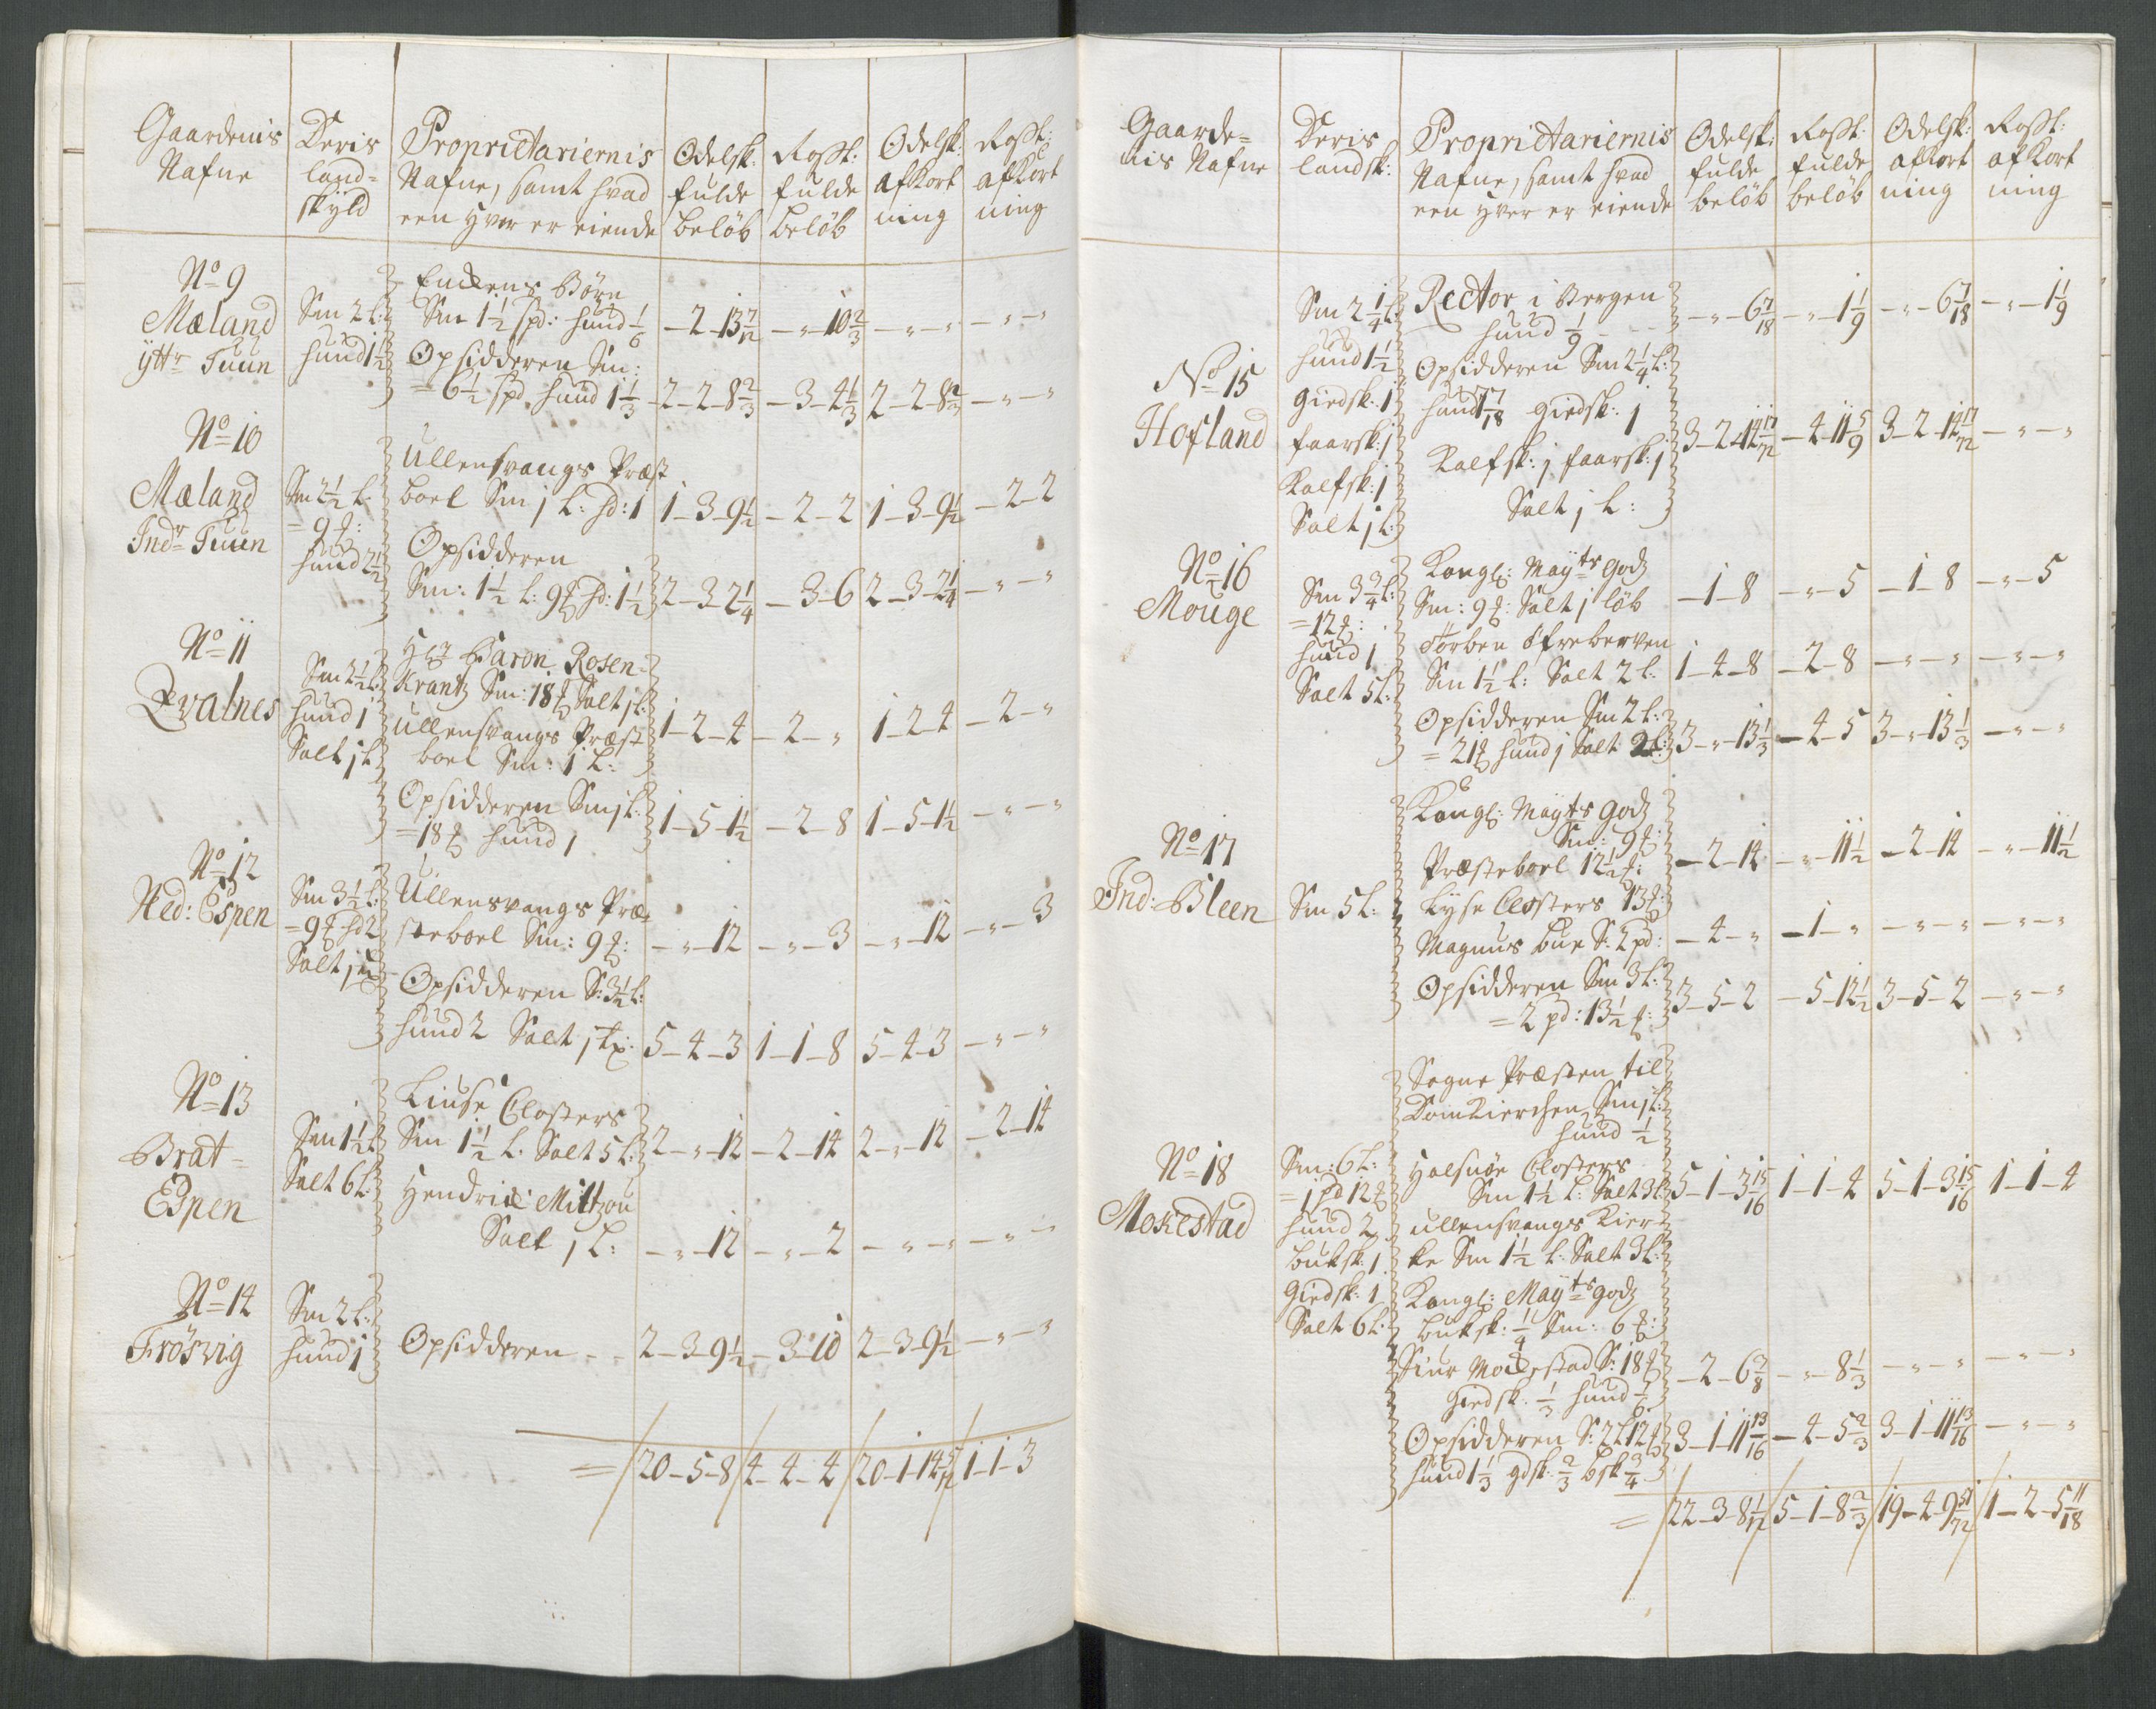 Gaardenis Nafne | Deris land= skyld | Proprietariernis Nafne, samt hvad een hver er eiende | Odelsk: fulde beløb | Rosst: fulde beløb | Odelsk: afkort ning | Rosst: afkort ning
No 9 Mæland ÿttr Tuun | Sm 2 L: huud 1½ | Enckens Börn
Sm 1½ spd: huud 1/6 | - 2 - 13 7/12 | - " - 10 2/3 | - " - " | - " - "
Opsidderen Sm:
= 6½ spd huud 1 1/3 | 2 - 2 - 8 2/3 | - 3 - 4 1/3 | 2 - 2 - 8 2/3 | - " - "
No 10 Mæland Indr Tuun | Sm 2½ L: = 9 ℔: huud 2½ | Ullensvangs Præst
boel Sm 1 L: hd: 1 | 1 - 3 - 9½ | - 2 - 2 | 1 - 3 - 9½ | - 2 - 2
Opsidderen
Sm: 1½ L: 9 ℔ hd: 1½ | 2 - 3 - 2¼ | - 3 - 6 | 2 - 3 - 2¼ | - " - "
No 11 Qvalnes | Sm 2½ L: huud 1 Salt 1 L | Hr Baron Rosen=
Krantz Sm: 18 ℔ Salt 1 L:
Ullensvangs Præst
boel Sm: 1 L: | 1 - 2 - 4 | - 2 - " | 1 - 2 - 4 | - 2 - "
Opsidderen Sm 1 L:
= 18 ℔ huud 1 | 1 - 5 - 1½ | - 2 - 8 | 1 - 5 - 1½ | - " - "
No 12 Ned: Espen | Sm 3½ L: = 9 ℔ hd 2 Salt 1 tø | Ullensvangs Præ
steboel Sm: 9 ℔: | - " - 12 | - " - 3 | - " - 12 | - " - 3
Opsidderen S: 3½ L:
huud 2 Salt 1 tø: | 5 - 4 - 3 | 1 - 1 - 8 | 5 - 4 - 3 | - " - "
No 13 Brat= Espen | Sm 1½ L Salt 6 L: | Liuse Closters
Sm 1½ L. Salt 5 L: | 2 - " - 12 | - 2 - 14 | 2 - " - 12 | - 2 - 14
Hendric Miltzou
Salt 1 L: | - " - 12 | - " - 2 | - " - " | - " - "
No 14 Frösvig | Sm 2 L: huud 1 | Opsidderen - - | 2 - 3 - 9½ | - 3 - 10 | 2 - 3 - 9½ | - " - "
= / 20 - 5 - 8 / 4 - 4 - 4 / 20 - 1 - 14 5/12 / 1 - 1 - 3
Gaarde= nis Nafne | Deris landsk: | Proprietariernis Nafne, samt hvad een hver er eiende | Odelsk: fulde beløb | Rosst: fulde beløb | Odelsk: afkort ning | Rosst: afkort ning
No 15 Hofland | Sm 2¼ L: huud 1½ giedsk: 1 faarsk: 1 Kalfsk: 1 Salt 1 L: | Rector i Bergen
huud 1/9 | - " - 6 7/18 | - " - 1 1/9 | - " - 6 7/18 | - " - 1 1/9
Opsidderen Sm 2¼ L:
huud 1 7/18 giedsk: 1
Kalfsk: 1 faarsk: 1
Salt 1 L: | 3 - 2 - 12 17/72 | - 4 - 11 5/9 | 3 - 2 - 12 17/72 | - " - "
No 16 Mouge | Sm 3¾ L: = 12 ℔: huud 1 Salt 5 L: | Kongl: Maÿts godz
Sm: 9 ℔: Salt 1 løb | - 1 - 8 | - " - 5 | - 1 - 8 | - " - 5
Torben Öfreberven
Sm 1½ L: Salt 2 L: | 1 - 4 - 8 | - 2 - 8 | - " - " | - " - "
Opsidderen Sm 2 L:
= 21 ℔ huud 1 Salt 2 L: | 3 - " - 13 1/3 | - 4 - 5 | 3 - " - 13 1/3 | - " - "
No 17 Ind: Bleen | Sm 5 L: | Kongl: Maÿts godz
Sm: 9 ℔:
Præsteboel 12½ ℔:
Lyse Closters 13 ℔: | - 2 - 14 | - " - 11½ | - 2 - 14 | - " - 11½
Magnus bue S: 2 pd: | - 4 - " | - 1 - " | - " - " | - " - "
Opsidderen Sm 3 L:
= 2 pd: 13½ ℔: | 3 - 5 - 2 | - 5 - 12½ | 3 - 5 - 2 | - " - "
No 18 Mokestad | Sm: 6 L: = 1 pd 12 ℔ huud 2 buksk: 1 giedsk: 1 Salt 6 L: | Sogne Præsten til
Domkierchen Sm 1 L:
huud ½
Halsnöe Closters
Sm 1½ L: Salt 3 L
Ullensvangs Kier
ke Sm 1½ L: Salt 3 L:
Kongl: Maÿts godz
buksk: ¼ Sm: 6 ℔: | 5 - 1 - 3 15/16 | 1 - 1 - 4 | 5 - 1 - 3 15/16 | 1 - 1 - 4
Siur Mockestad S: 18 ℔
giedsk. 1/3 huud 1/6 | - 2 - 6 7/8 | - " - 8 1/3 | - " - " | - " - "
Opsidderen S: 2 L 12 ℔
huud 1 1/3 gdsk: 2/3 bsk ¾ | 3 - 1 - 11 13/16 | - 4 - 5 2/3 | 3 - 1 - 11 13/16 | - " - "
= / 22 - 3 - 8 1/12 / 5 - 1 - 8 2/3 / 19 - 4 - 9 51/72 / 1 - 2 - 5 11/18